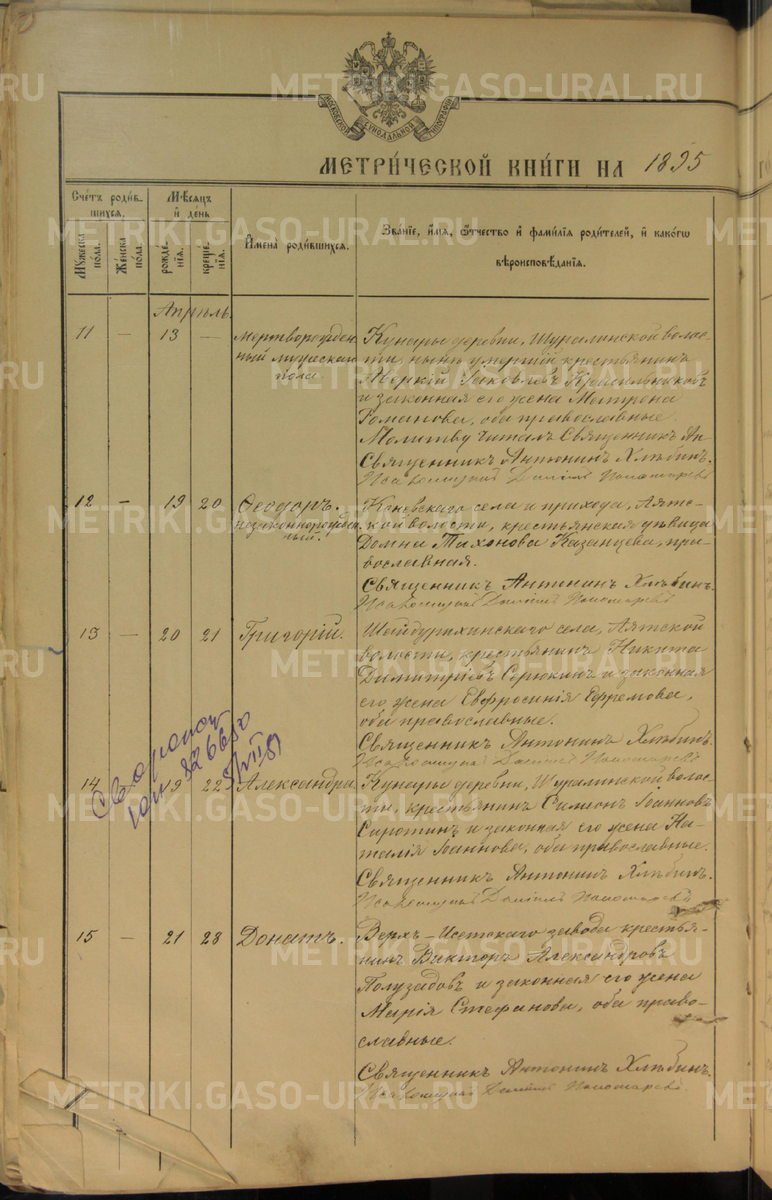 METRIKI.GASO-URAL.RU
МОСКОВСКОЙ СУНОДАЛЬНОЙ ТИПОГРАФІИ
МЕТРИ́ЧЕСКОЙ КНИ́ГИ НА 1895
Сче́тъ роди́в-
шихся.
Мѣ́сяцъ
и҆ де́нь
Мꙋ́жеска
по́ла.
Же́нска
по́ла.
рожде́-
нїѧ.
креще́-
нїѧ.
И҆мена̀ роди́вшихся.
Зва́нїе, и҆́мѧ, ѻ҆́тчество и҆ фами́лїѧ роди́телей, и҆ како́гѡ
вѣроисповѣ́данїѧ.
Апрѣль.
11 — 13 — Мертворожден-
ный мужескаго
пола
Кунары деревни, Шуралинской волос-
ти, нынѣ умершій крестьянинъ
Аверкій Яковлевъ Красильниковъ
и законная его жена Матрона
Романова, оба православные.
Молитву читалъ Священникъ Ан
Священникъ Антонинъ Хлѣбинъ.
Псаломщикъ Даніилъ Пономаревъ
12 — 19 20 Ѳеодоръ.
незаконнорожден-
ный.
Коневскаго села и прихода, Аятс-
кой волости, крестьянская дѣвица
Домна Тихонова Казанцева, пра-
вославная.
Священникъ Антонинъ Хлѣбинъ.
Псаломщикъ Даніилъ Пономаревъ
13 — 20 21 Григорій.
Шайдурихинскаго села, Аятской
волости, крестьянинъ Никита
Димитріевъ и законная
его жена Евфросинія Ефремова,
оба православные.
Священникъ Антонинъ Хлѣбинъ.
Псаломщикъ Даніилъ Пономаревъ
14 19 22 Александръ
Кунары деревни, Шуралинской волос-
ти, крестьянинъ Симеонъ Іоанновъ
Сиротинъ и законная его жена На-
талія Іоаннова, оба православные.
Священникъ Антонинъ Хлѣбинъ.
Псаломщикъ Даніилъ Пономаревъ
15 — 21 28 Донатъ.
Верхъ-Исетскаго завода крестья-
нинъ Викторъ Александровъ
Полузадовъ и законная его жена
Марія Стефанова, оба право-
славные.
Священникъ Антонинъ Хлѣбинъ.
Псаломщикъ Даніилъ Пономаревъ